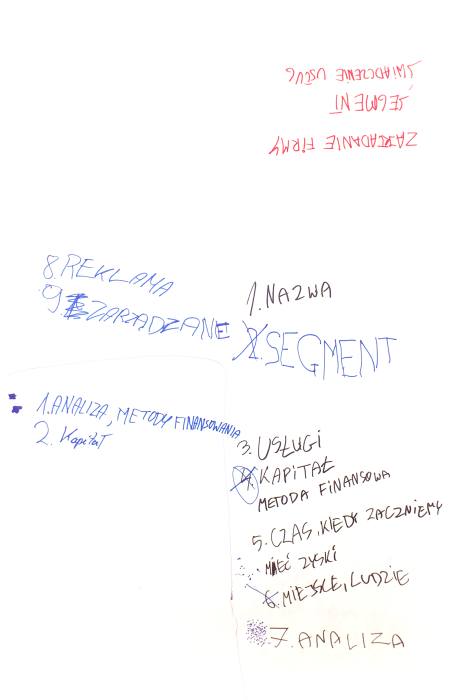 ZAKŁADANIE FIRMY
SEGMENT
ŚWIADCZENIE USŁUG
8. REKLAMA
9. ZARZĄDZANE
1. ANALIZA, METODY FINANSOWANIA
2. Kapitał
1. NAZWA
2. SEGMENT
3. USŁUGI
4. KAPITAŁ
METODA FINANSOWA
5. CZAS, KIEDY ZACZNIEMY
MIEĆ ZYSKI
6. MIEJSCE, LUDZIE
7. ANALIZA